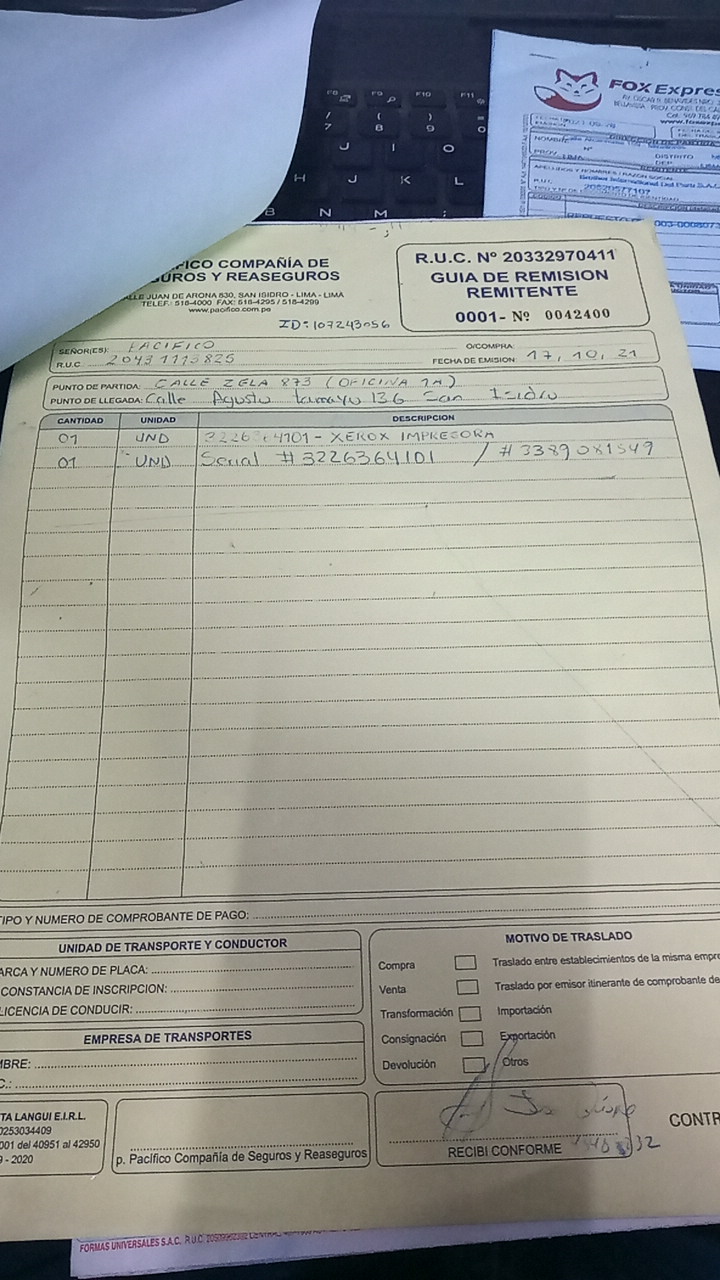 FOX Expres
AV. OSCAR R. BENAVIDES NRO.
www.fox
DISTRITO
20520577107
003-000807
FICO COMPAÑÍA DE
UROS Y REASEGUROS
ALLE JUAN DE ARONA 830, SAN ISIDRO - LIMA - LIMA
TELEF.: 518-4000 FAX: 518-4295 / 518-4299
www.pacifico.com.pe
ID: 107243056
R.U.C. Nº 20332970411
GUIA DE REMISION
REMITENTE
0001- Nº 0042400
SEÑOR(ES): PACIFICO
O/COMPRA:
R.U.C. 20431115825
FECHA DE EMISION: 17, 10, 21
PUNTO DE PARTIDA: CALLE ZELA 873 (OFICINA 1A)
PUNTO DE LLEGADA: Calle Agusto tamayo 136 San Isidro
CANTIDAD UNIDAD DESCRIPCION
01 UND 3226364101 - XEROX IMPRESORA
01 UND Serial #3226364101 / #3389081549
TIPO Y NUMERO DE COMPROBANTE DE PAGO:
UNIDAD DE TRANSPORTE Y CONDUCTOR
ARCA Y NUMERO DE PLACA:
CONSTANCIA DE INSCRIPCION:
LICENCIA DE CONDUCIR:
EMPRESA DE TRANSPORTES
MBRE:
C.:
MOTIVO DE TRASLADO
Compra Traslado entre establecimientos de la misma empre
Venta Traslado por emisor itinerante de comprobante de
Transformación Importación
Consignación Exportación
Devolución Otros
TA LANGUI E.I.R.L.
0253034409
001 del 40951 al 42950
9 - 2020
p. Pacífico Compañía de Seguros y Reaseguros
RECIBI CONFORME
CONTR
FORMAS UNIVERSALES S.A.C. R.U.C.